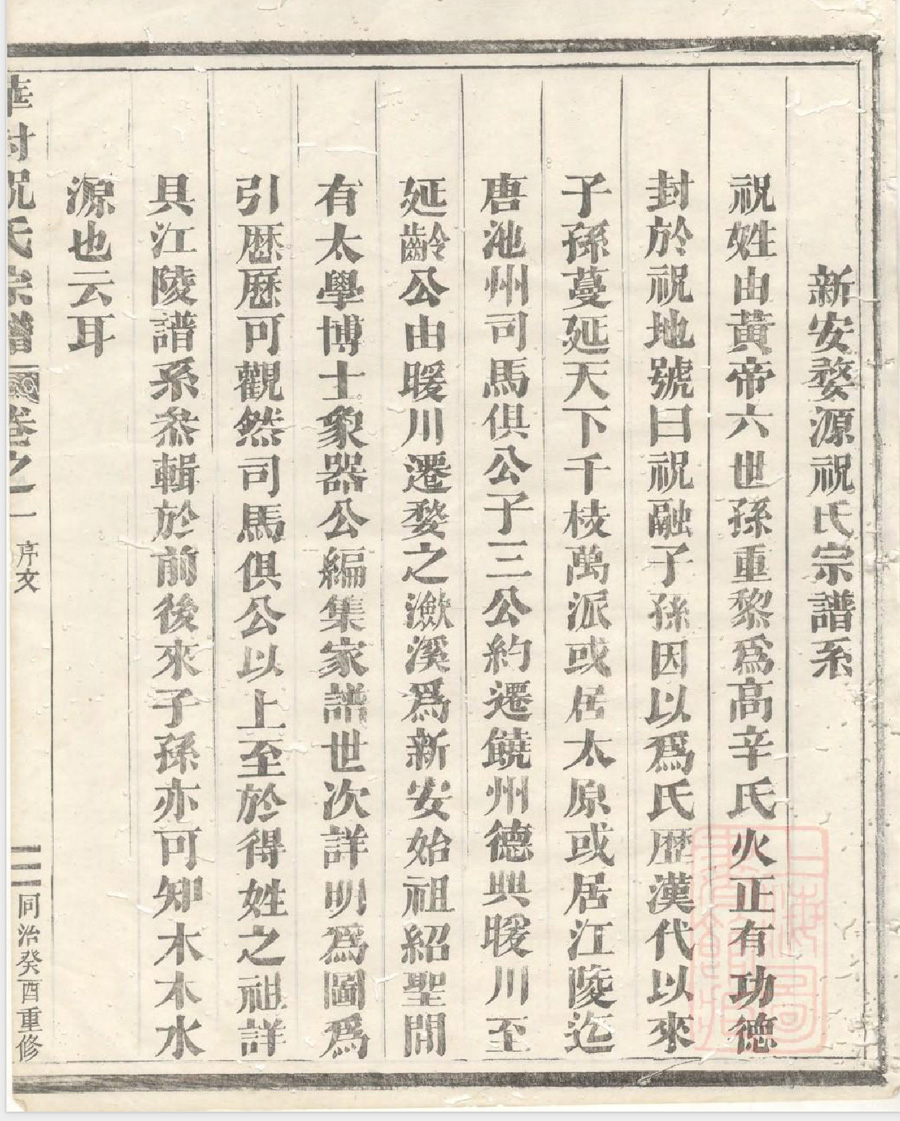 新安婺源祝氏宗譜系
祝姓由黃帝六世孫重黎爲高辛氏火正有功德
封於祝地號曰祝融子孫因以爲氏歴漢代以來
子孫蔓延天下千枝萬派或居太原或居江陵迄
唐池州司馬俱公子三公約遷饒州德興暖川至
延齡公由暖川遷婺之瀲溪爲新安始祖紹聖間
有太學博士象器公編集家譜世次詳明爲圖爲
引歴歴可觀然司馬俱公以上至於得姓之祖詳
具江陵譜系叅輯於前後來子孫亦可知木木水
源也云耳
祝氏宗譜 卷之一 序文 二 同治癸酉重修